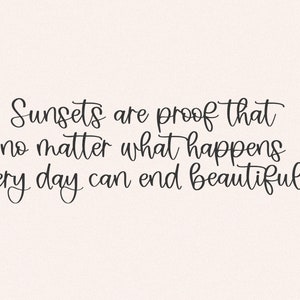 Sunsets are proof that
no matter what happens
ery day can end beautiful